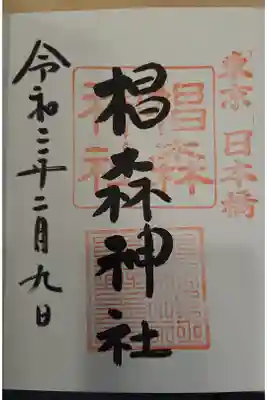 東京 日本橋
椙森
神社
椙森神社
令和二年二月九日